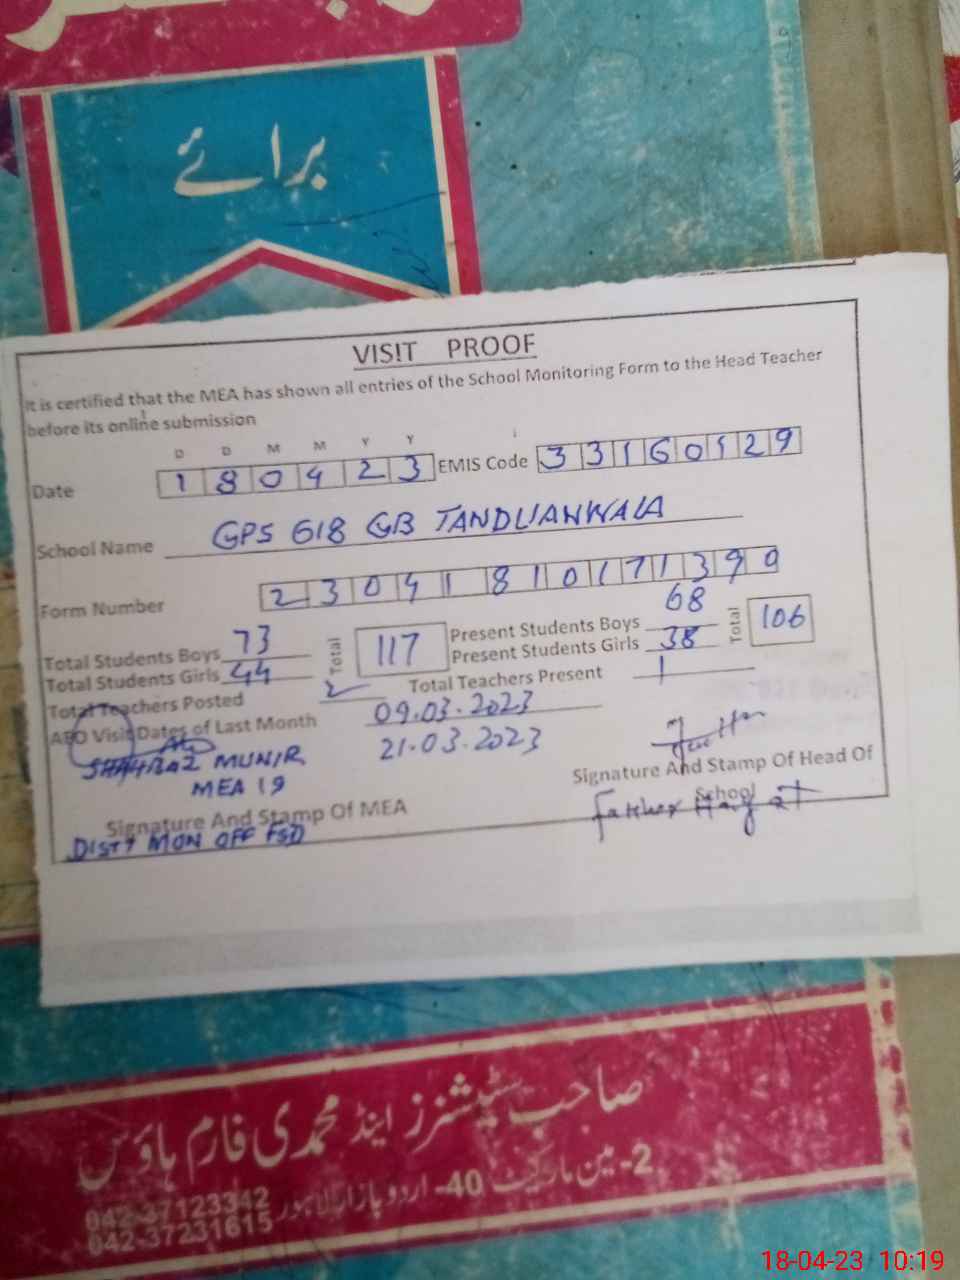 برائے
VISIT PROOF
It is certified that the MEA has shown all entries of the School Monitoring Form to the Head Teacher
before its online submission
D D M M Y Y
Date 1 8 0 4 2 3 EMIS Code 3 3 1 6 0 1 2 9
School Name GPS 618 GB TANDLIANWALA
Form Number 2 3 0 4 1 8 1 0 1 7 1 3 9 9
Total Students Boys 73 Total 117 Present Students Boys 68 Total 106
Total Students Girls 44 Present Students Girls 38
Total Teachers Posted 2 Total Teachers Present 1
AEO Visit Dates of Last Month 09.03.2023
21.03.2023
SHAHBAZ MUNIR
MEA 19
Signature And Stamp Of MEA
DISTT MON OFF FSD
Signature And Stamp Of Head Of
School
Hayat
صاحب سٹیشنرز اینڈ محمدی فارم ہاؤس
2-مین مارکیٹ 40-اردو بازار لاہور
042-37123342
042-37231615
18-04-23 10:19